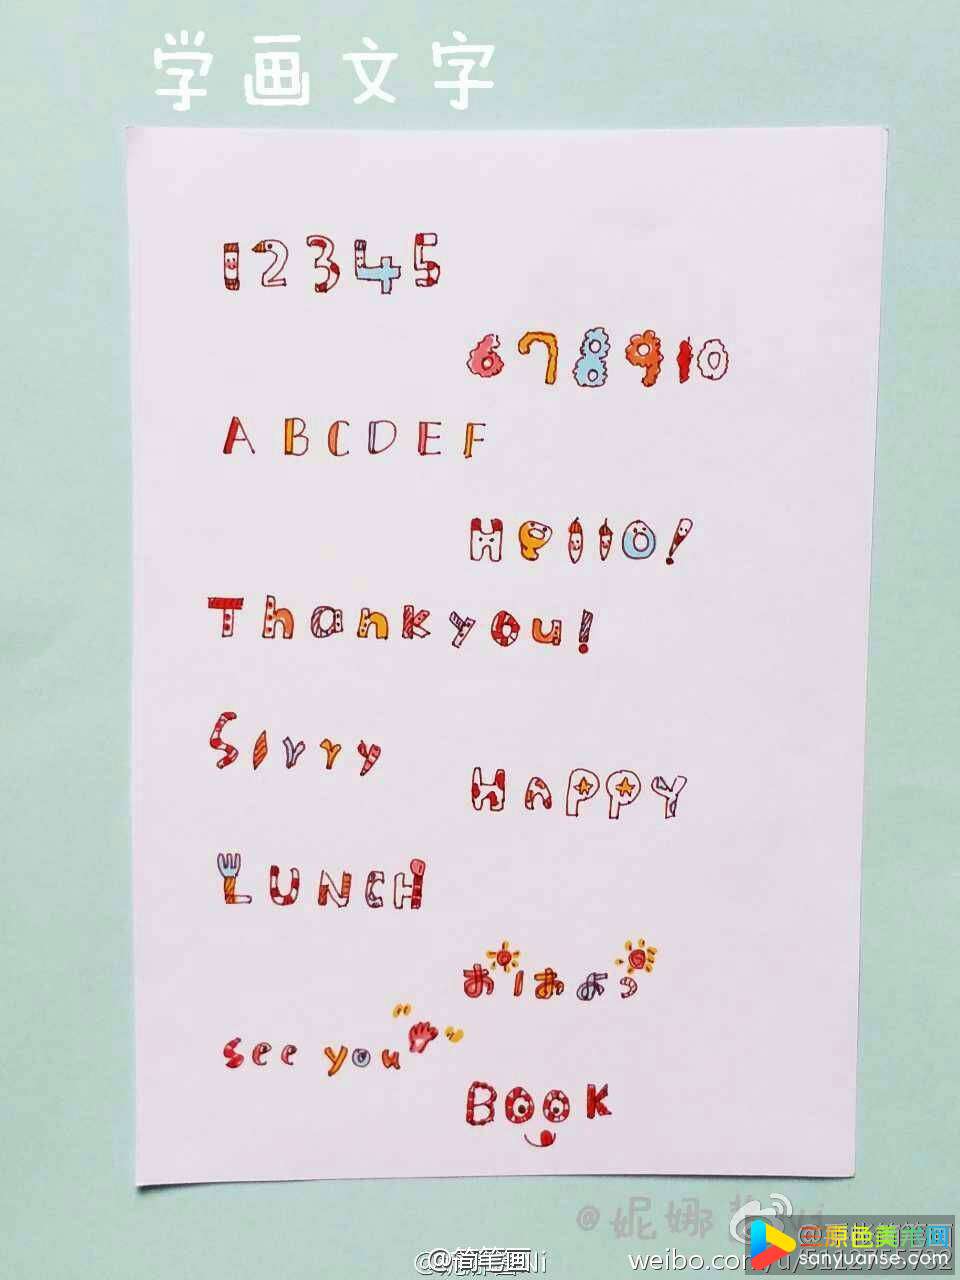 学画文字
12345
678910
ABCDEF
Hello!
Thank you!
Sorry
HAPPY
LUNCH
おはよう
see you
BOOK
@简笔画
sanyuanse.com